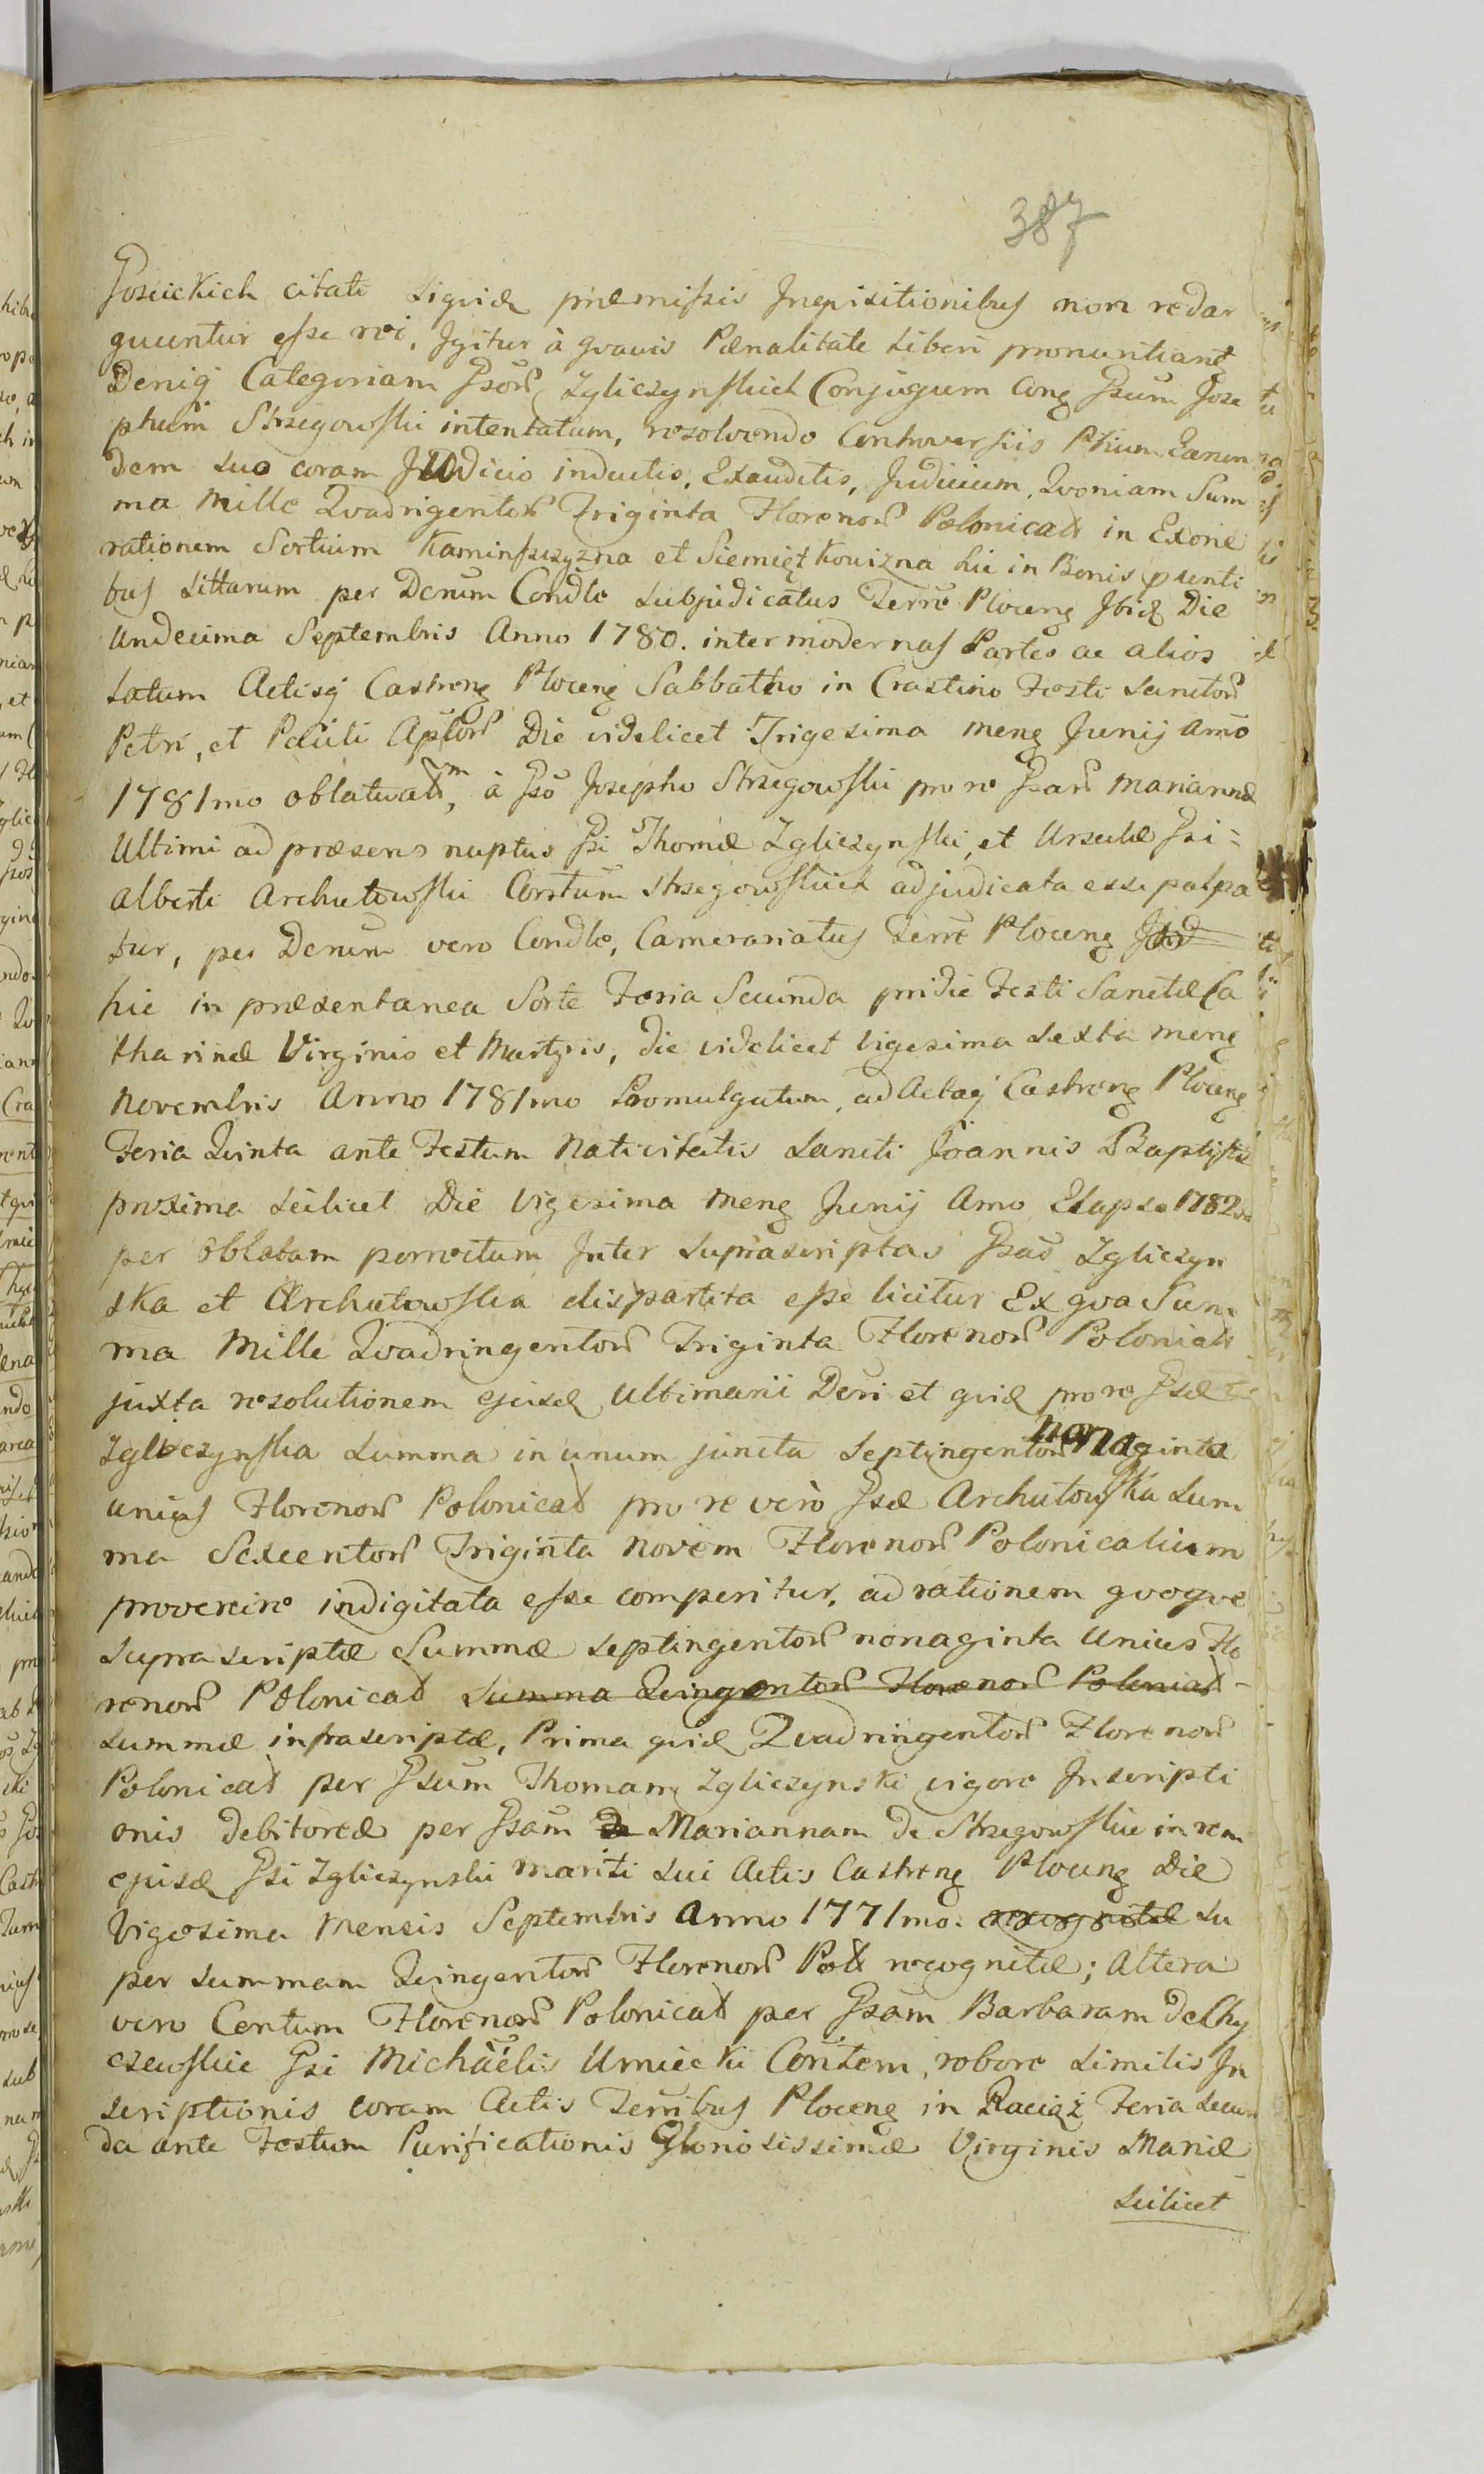 387
Gosiickich citati siquid præmissis Inquisitionibus non redar
guuntur esse rei, Igitur à gravis Pænalitate liberi pronuntiant
Deniq Categoriam Gsorũ Zgliczynskich Conjugum cons Gsum Jose
phum Strzegowski intentatum, resolvendo Controversiis Ptium Earun
dem suo coram Judicio inductis, Exauditis, Judicium, Qvoniam Sum
ma Mille Qvadrigentorũ Triginta Florenorũ Polonicaliũ in Exone
rationem Sortium Kaminszczyzna et Siemiątkowizna hic in Bonis psenti
bus sittarum per Derum Condle Subjudicatus Terræ Plocens Ibid Die
Undecima Septembris Anno 1780. inter modernas Partes ac alios
Latum Actisq Castrens Plocens Sabbatho in Crastino Festi Sanctorũ
Petri, et Pauli Aplorũ Die videlicet Trigesima mens Junij Anno
1781mo oblatuarum, à Gso Josepho Strzegowski pro re Gsarũ Mariannæ
Ultimi ad præsens nuptus Gsi Thomæ Zgliczynski, et Ursulæ Gsi
Alberti Archutowski Conrtum Strzegowskich adjudicata esse palpa
tur, per Derum vero Condle, Camerariatus Terræ Plocens Ibid
hic in præsentanea Sorte Feria Secunda pridie Festi Sanctæ Ca
tharinæ Virginis et Martyris, die videlicet vigesima sexta mens
Novembris Anno 1781mo Promulgatum, ad Actaq Castrens Plocens
Feria Qvinta ante Festum Nativitatis Sancti Joannis Baptistæ
proxima scilicet Die vigesima mens Junij Anno Elapso 1782do
per Oblatam porrectum Inter suprascriptas Gsas Zgliczyn
ska et Archutowska dispartita esse licitur Ex qva Sum
ma Mille Qvadringentorũ Triginta Florenorũ Polonicaliũ
juxta resolutionem ejusd Ultimarii Deri et quid pro re Gsæ
Zgliczynska summa in unum juncta Septingentorũ nonaginta
unius Florenorũ Polonicaliũ pro re verò Gsæ Archutowska Sum
ma Sexcentorũ Triginta Novem Florenorũ Polonicalium
provenire indigitata esse comperitur, ad rationem qvoqve
supra scriptæ Summæ septingentorũ nonaginta Unius Flo
renorũ Polonicaliũ Summa Qvingentorũ Florenorũ Polonicaliũ
summæ infrascriptæ, Prima quid Qvadringentorũ Florenorũ
Polonicaliũ per Gsum Thomam Zgliczynski vigore Inscripti
onis debitoreæ per Gsam De Mariannam de Strzegowskie in rem
ejusd Gsi Zgliczynski mariti sui Actis Castrens Plocens Die
Vigesima Mensis Septembris Anno 1771mo. recognitæ su
per summam Qvingentorũ Florenorũ Pol recognitæ; Altera
vero Centum Florenorũ Polonicaliũ per Gsam Barbaram de Chy
czewskie Gsi Michaëlis Umiecki Contem, robore similis In
scriptionis coram Actis Terribus Plocens in Raciąż Feria Secun
da ante Festum Purificationis Gloriosissimæ Virginis Mariæ
Scilicet